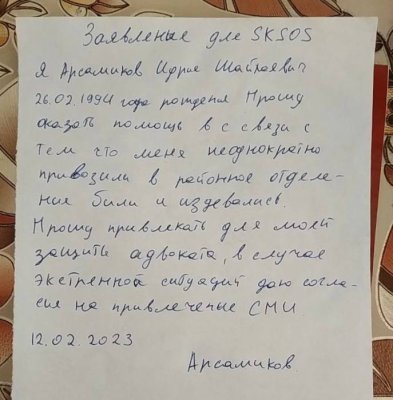 Заявление для SKSOS
Я Арсамиков Идрис Шайпаевич
26.02.1994 года рождения Прошу
оказать помощь в с связи с
тем что меня неоднократно
привозили в районное отделе-
ние били и издевались.
Прошу привлекать для моей
защиты адвоката, в случае
экстренной ситуаций даю согла-
сие на привлечение СМИ.
12.02.2023
Арсамиков